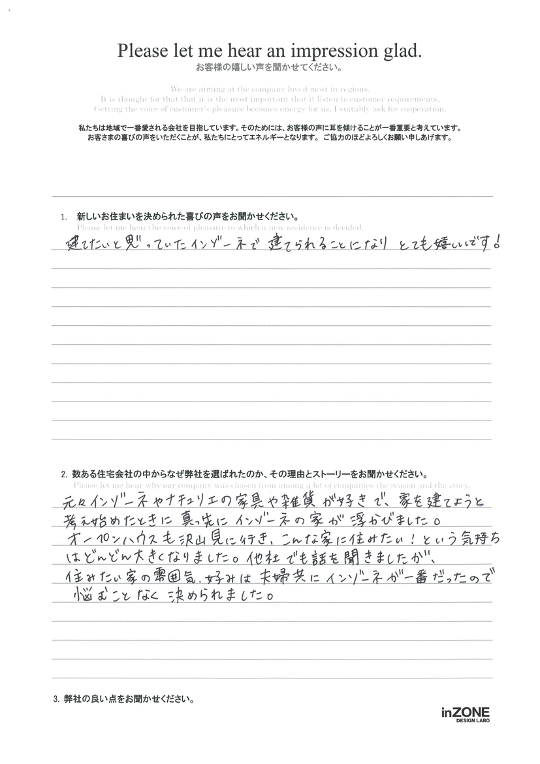 Please let me hear an impression glad.
お客様の嬉しい声を聞かせてください。
We are aiming at the company loved most in regions.
It is thought for that that it is the most important that it listen to customer requirements.
Getting the voice of customer's pleasure becomes energy for us, I suitably ask for cooperation.
私たちは地域で一番愛される会社を目指しています。そのためには、お客様の声に耳を傾けることが一番重要と考えています。
お客さまの喜びの声をいただくことが、私たちにとってエネルギーとなります。 ご協力のほどよろしくお願い申しあげます。
1. 新しいお住まいを決められた喜びの声をお聞かせください。
Please let me hear the voice of pleasure to which a new residence is decided.
建てたいと思っていたインゾーネで 建てられることになり とても嬉しいです!
2. 数ある住宅会社の中からなぜ弊社を選ばれたのか、その理由とストーリーをお聞かせください。
Please let me hear why our company was chosen from among a lot of companies the reason and the story.
元々インゾーネやナチュリエの家具や雑貨が好きで、家を建てようと
考え始めたときに真っ先にインゾーネの家が浮かびました。
オープンハウスも沢山見に行き、こんな家に住みたい!という気持ち
はどんどん大きくなりました。他社でも話を聞きましたが、
住みたい家の雰囲気、好みは夫婦共にインゾーネが一番だったので
悩むことなく決められました。
3. 弊社の良い点をお聞かせください。
inZONE
DESIGN LABO